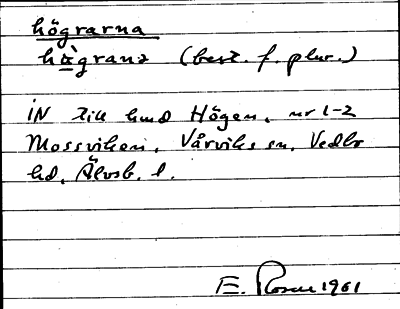 högrarna
hògranɘ (best. f. plur.)
iN till hmd Högen, nr 1-2
Mossviken, Vårviks sn. Vedbo
hd, Älvsb. l.
E. Rosen 1961